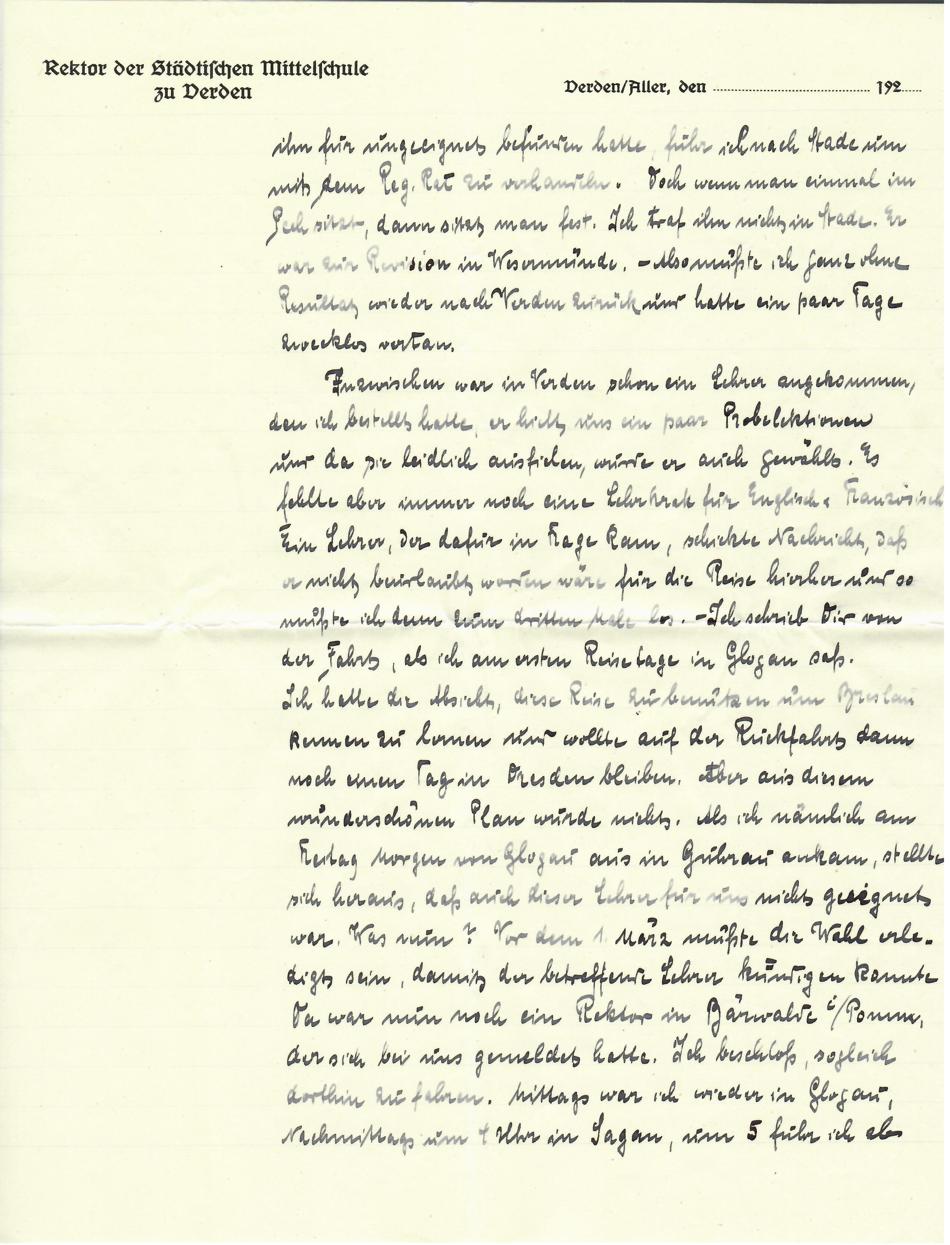 Rektor der Städtischen Mittelschule
zu Verden
Verden/Aller, den 192
ihn für ungeeignet befunden hatte, fuhr ich nach Stade um
mit dem Reg. Rat zu verhandeln. Doch wenn man einmal im
Pech sitzt, dann sitzt man fest. Ich traf ihn nicht in Stade. Er
war zur Revision in Wesermünde. – Also mußte ich ganz ohne
Resultat wieder nach Verden zurück und hatte ein paar Tage
zwecklos vertan.
Inzwischen war in Verden schon ein Lehrer angekommen,
den ich bestellt hatte, er hielt uns ein paar Probelektionen
und da sie leidlich ausfielen, wurde er auch gewählt. Es
fehlte aber immer noch eine Lehrkraft für Englisch u Französisch
Ein Lehrer, der dafür in Frage kam, schickte Nachricht, daß
er nicht beurlaubt worden wäre für die Reise hierher und so
mußte ich denn zum dritten Male los. – Ich schrieb Dir von
der Fahrt, als ich am ersten Reisetage in Glogau saß.
Ich hatte die Absicht, diese Reise zu benutzen um Breslau
kennen zu lernen und wollte auf der Rückfahrt dann
noch einen Tag in Dresden bleiben. Aber aus diesem
wunderschönen Plan wurde nichts. Als ich nämlich am
Freitag Morgen von Glogau aus in Guhrau ankam, stellte
sich heraus, daß auch dieser Lehrer für uns nicht geeignet
war. Was nun? Vor dem 1. März mußte die Wahl erle-
digt sein, damit der betreffende Lehrer kündigen konnte
Da war nun noch ein Rektor in Bärwalde i/Pomm,
der sich bei uns gemeldet hatte. Ich beschloß, sogleich
dorthin zu fahren. Mittags war ich wieder in Glogau,
Nachmittags um 4 Uhr in Sagan, um 5 fuhr ich ab